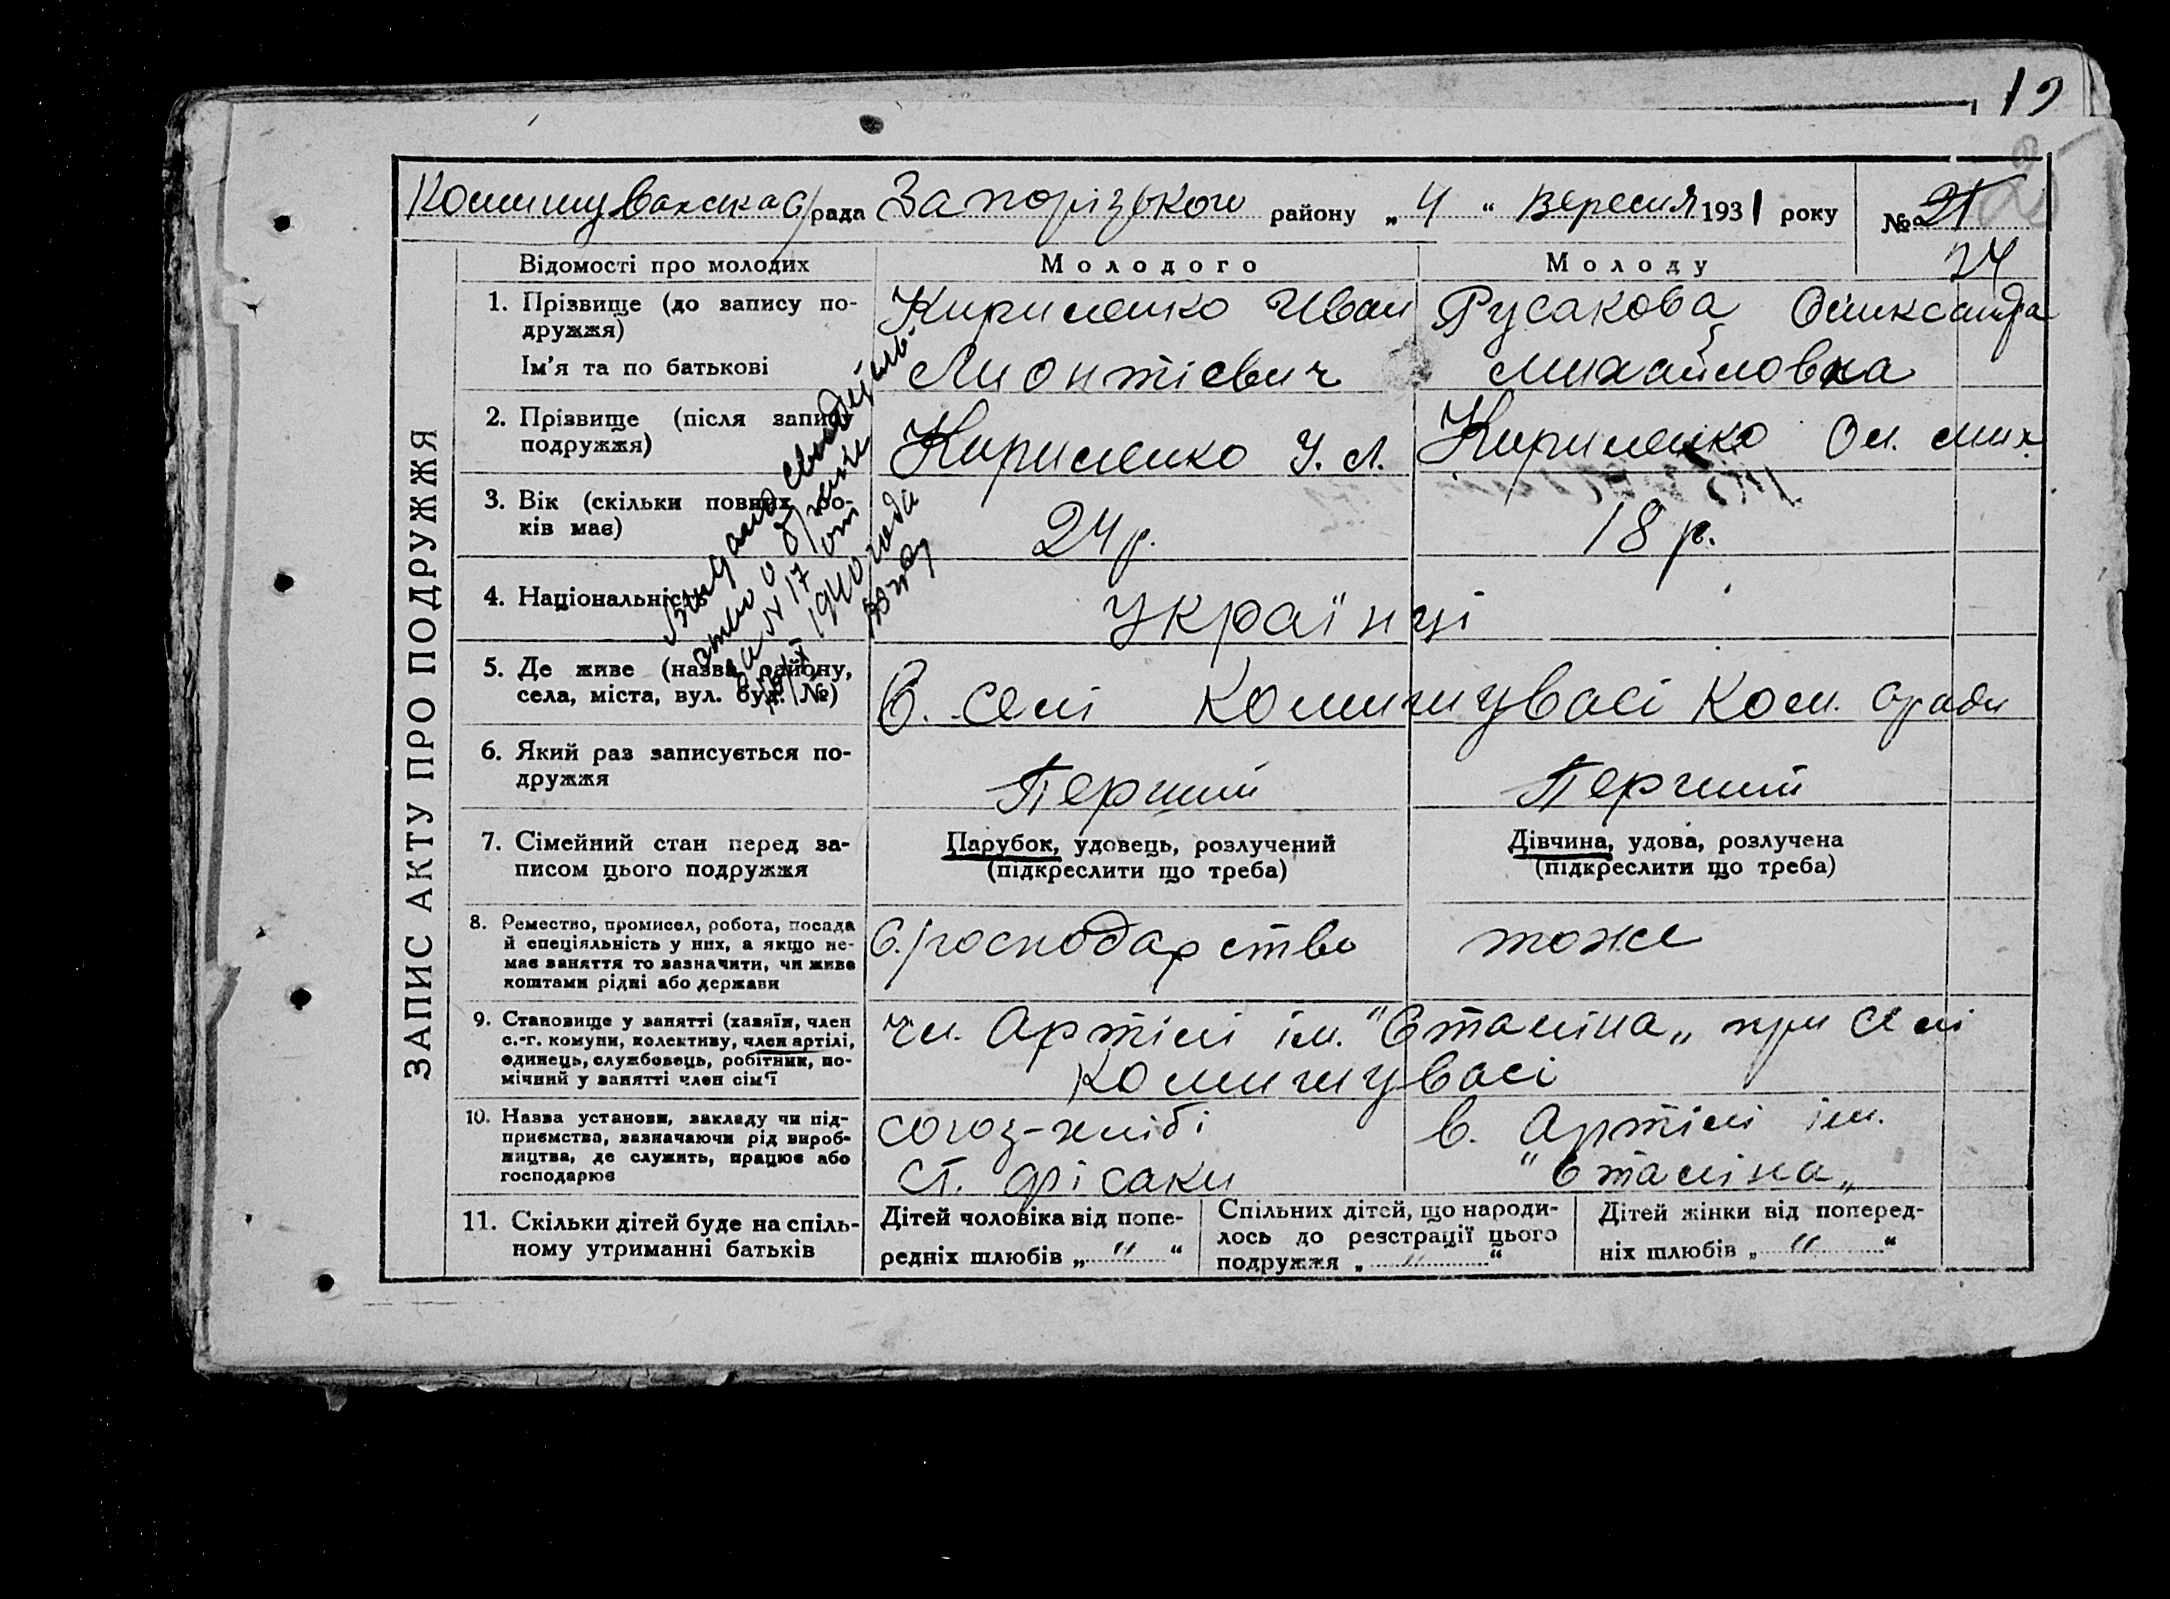 12
Комишувахська с/рада Запорізького району „ 4 “ вересня 1931 року № 21
24
ЗАПИС АКТУ ПРО ПОДРУЖЖЯ
Відомості про молодих Молодого Молоду
1. Прізвище (до запису по-
дружжя)
Ім'я та по батькові
Кириленко Иван
Лионтієвич
Русакова Оликсандра
Михайловка
2. Прізвище (після запису
подружжя)
Кириленко И. Л.
Кириленко Ол. Мих.
3. Вік (скільки повних ро-
ків має)
24 р.
18 р.
4. Національність
Українці
5. Де живе (назва району,
села, міста, вул. буд. №)
В. селі Комишувасі Ком. с/ради
6. Який раз записується по-
дружжя
Перший
Перший
7. Сімейний стан перед за-
писом цього подружжя
Парубок, удовець, розлучений
(підкреслити що треба)
Дівчина, удова, розлучена
(підкреслити що треба)
8. Ремество, промисел, робота, посада
й спеціяльність у них, а якщо не-
має заняття то зазначити, чи живе
коштами рідні або держави
с/господарство
тоже
9. Становище у занятті (хазяїн, член
с.-г. комуни, колективу, член артілі,
одинець, службовець, робітник, по-
мічний у занятті член сім'ї
чл. Артілі ім. "Сталіна„ при селі
Комишувасі
10. Назва установи, закладу чи під-
приємства, зазначаючи рід вироб-
ництва, де служить, працює або
господарює
союз-хлібі
ст. Фісаки
в. Артілі ім.
"Сталіна„
11. Скільки дітей буде на спіль-
ному утриманні батьків
Дітей чоловіка від попе-
редніх шлюбів „ " “
Спільних дітей, що народи-
лось до реєстрації цього
подружжя „ " “
Дітей жінки від поперед-
ніх шлюбів „ " “
Выдано свидетель
ство о б/жении
за N 17 от
1940 года